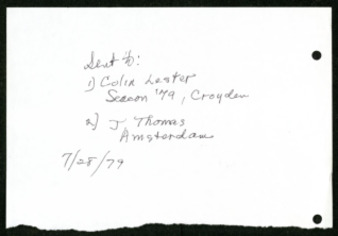 Sent to:
1) Colin Lester
Season '79, Croyden
2) J Thomas
Amsterdam
7/28/79